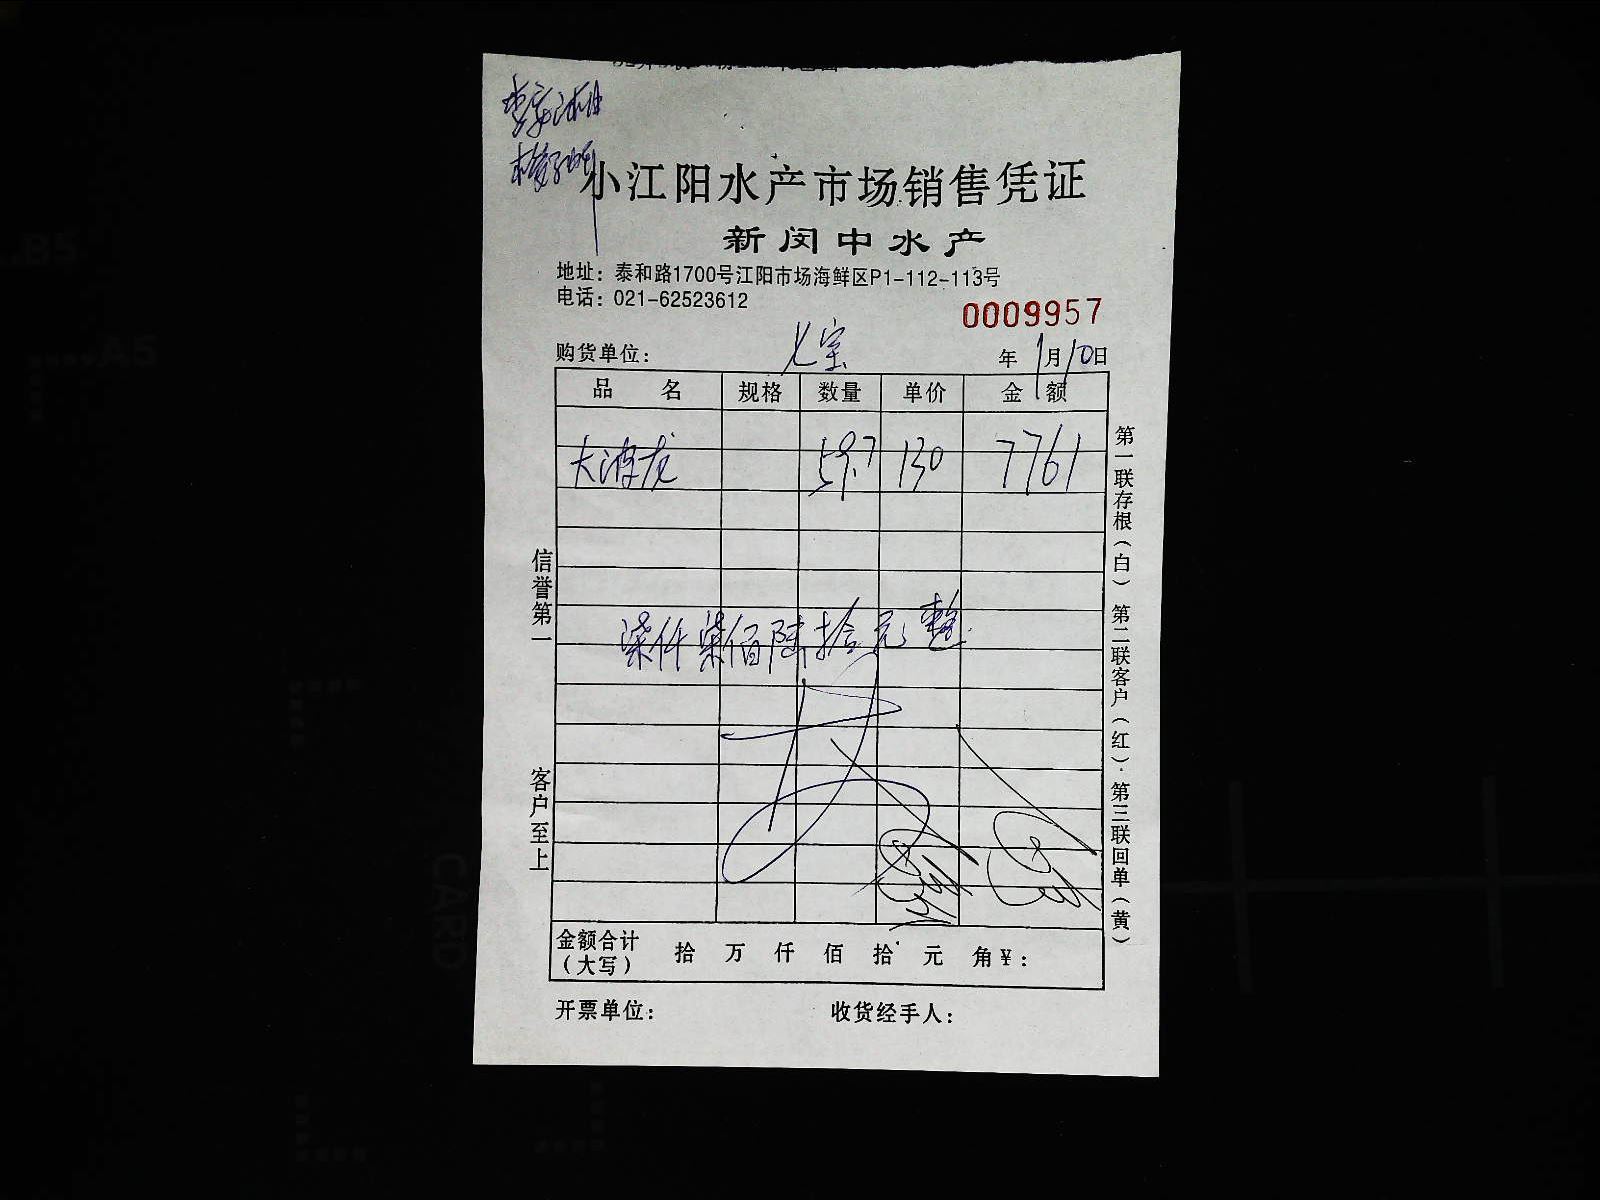 小江阳水产市场销售凭证
新闵中水产
地址：泰和路1700号江阳市场海鲜区P1-112-113号
电话：021-62523612
0009957
购货单位： 七宝 年 1月10日
品名 规格 数量 单价 金额
大波龙 59.7 130 7761
柒仟柒佰陆拾元整
金额合计（大写） 拾 万 仟 佰 拾 元 角 ￥：
开票单位： 收货经手人：
信誉第一
客户至上
第一联存根（白） 第二联客户（红） 第三联回单（黄）